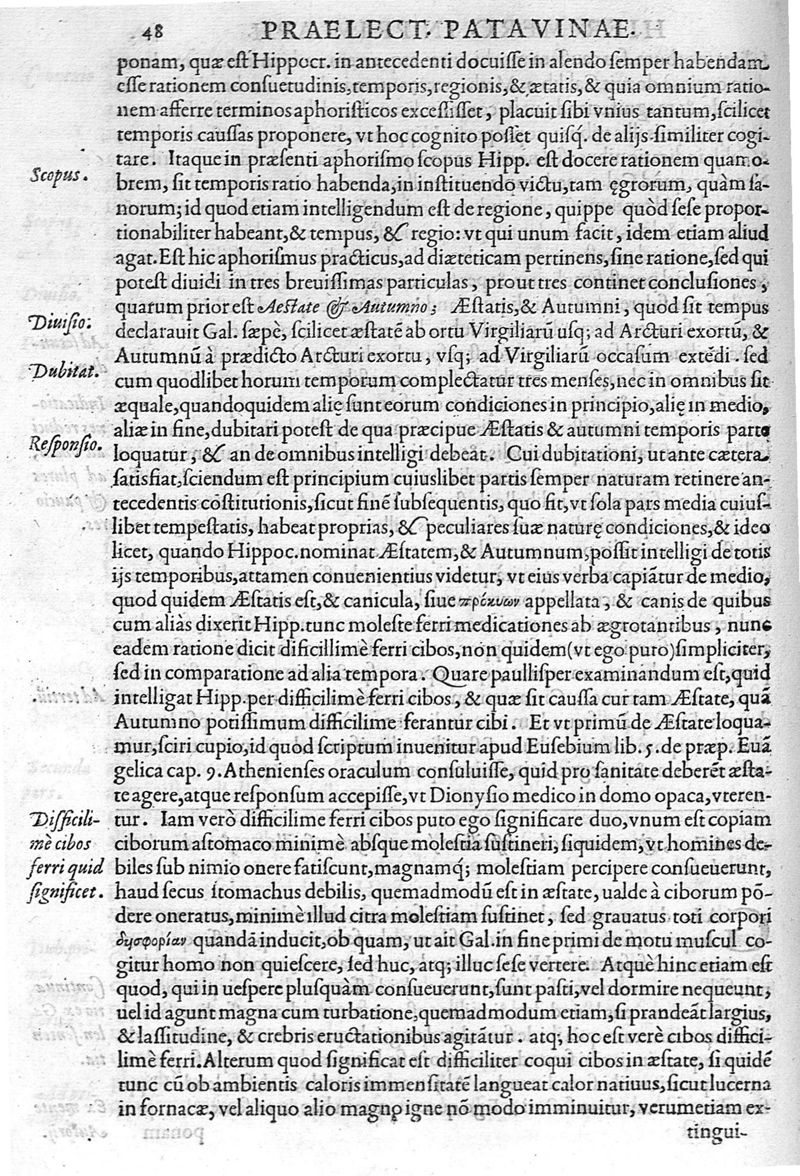 48 PRAELECT. PATAVINAE.
ponam, quæ est Hippocr. in antecedenti docuisse in alendo semper habendam
esse rationem consuetudinis, temporis, regionis, & ætatis, & quia omnium ratio-
nem afferre terminos aphoristicos excessisset, placuit sibi vnius tantum, scilicet
temporis caussas proponere, vt hoc cognito posset quisq. de alijs similiter cogi-
tare. Itaque in præsenti aphorismo scopus Hipp. est docere rationem quamo-
Scopus.
brem, sit temporis ratio habenda, in instituendo victu, tam ęgrorum, quàm sa-
norum; id quod etiam intelligendum est de regione, quippe quòd sese propor-
tionabiliter habeant, & tempus, & regio: vt qui unum facit, idem etiam aliud
agat. Est hic aphorismus practicus, ad diæteticam pertinens, sine ratione, sed qui
potest diuidi in tres breuissimas particulas, prout tres continet conclusiones,
quarum prior est Aestate & Autumno; Æstatis, & Autumni, quod sit tempus
Diuisio.
declarauit Gal. sæpè, scilicet æstatē ab ortu Virgiliarū usq; ad Arcturi exortū, &
Autumnū à prædicto Arcturi exortu, vsq; ad Virgiliarū occasum extēdi. sed
Dubitat.
cum quodlibet horum temporum complectatur tres menses, nec in omnibus sit
æquale, quandoquidem alię sunt eorum condiciones in principio, alię in medio,
aliæ in fine, dubitari potest de qua præcipue Æstatis & autumni temporis parte
Responsio.
loquatur, & an de omnibus intelligi debeat. Cui dubitationi, ut ante cætera
satisfiat, sciendum est principium cuiuslibet partis semper naturam retinere an-
tecedentis cōstitutionis, sicut finē subsequentis, quo fit, vt sola pars media cuius-
libet tempestatis, habeat proprias, & peculiares suæ naturę condiciones, & ideo
licet, quando Hippoc. nominat Æstatem, & Autumnum, possit intelligi de totis
ijs temporibus, attamen conuenientius videtur, vt eius verba capiātur de medio,
quod quidem Æstatis est, & canicula, siue πρέκυων appellata, & canis de quibus
cum aliàs dixerit Hipp. tunc moleste ferri medicationes ab ægrotantibus, nunc
eadem ratione dicit dificillimè ferri cibos, non quidem (vt ego puto) simpliciter,
sed in comparatione ad alia tempora. Quare paullisper examinandum est, quid
intelligat Hipp. per difficilimè ferri cibos, & quæ sit caussa cur tam Æstate, quā
Autumno potissimum difficilime ferantur cibi. Et vt primū de Æstate loqua-
mur, sciri cupio, id quod scriptum inuenitur apud Eusebium lib. 5. de præp. Euā
gelica cap. 9. Athenienses oraculum consuluisse, quid pro sanitate deberēt æsta-
te agere, atque responsum accepisse, vt Dionysio medico in domo opaca, vteren-
Difficili-
mè cibos
ferri quid
significet.
tur. Iam verò difficilime ferri cibos puto ego significare duo, vnum est copiam
ciborum astomaco minimè absque molestia sustineri; siquidem, vt homines de-
biles sub nimio onere fatiscunt, magnamq; molestiam percipere consueuerunt,
haud secus stomachus debilis, quemadmodū est in æstate, ualde à ciborum pō-
dere oneratus, minimè illud citra molestiam sustinet, sed grauatus toti corpori
δησφορίαν quandā inducit, ob quam, ut ait Gal. in fine primi de motu muscul co-
gitur homo non quiescere, sed huc, atq; illuc sese vertere. Atquè hinc etiam est
quod, qui in uespere plusquàm consueuerunt, sunt pasti, vel dormire nequeunt,
uel id agunt magna cum turbatione, quemadmodum etiam, si prandeāt largius,
& lassitudine, & crebris eructationibus agitātur. atq; hoc est verè cibos difficil-
limè ferri. Alterum quod significat est difficiliter coqui cibos in æstate, si quidē
tunc cū ob ambientis caloris immensitatē langueat calor natiuus, sicut lucerna
in fornacæ, vel aliquo alio magno igne nō modo imminuitur, verumetiam ex-
tingui-